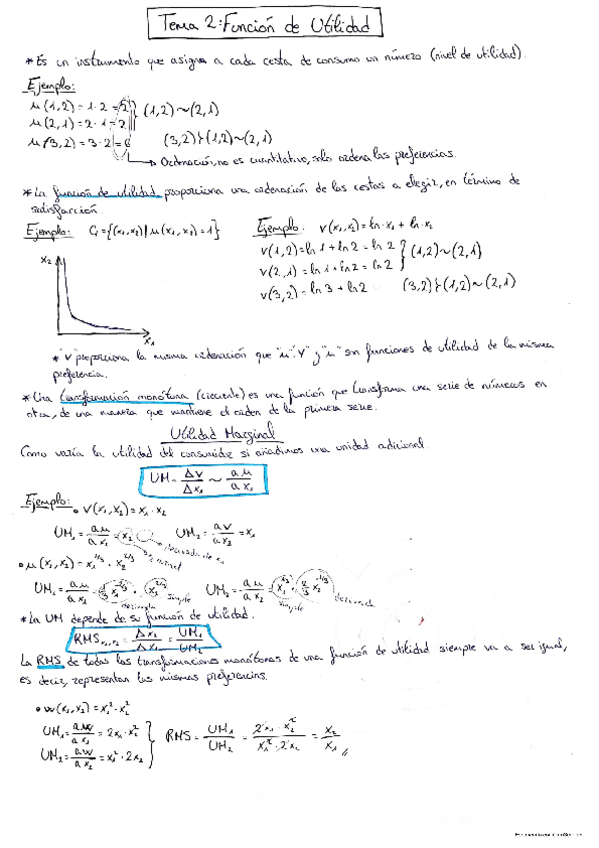 Tema 2: Función de Utilidad
* Es un instrumento que asigna a cada cesta de consumo un número (nivel de utilidad).
Ejemplo:
μ(1,2) = 1·2 = 2 } (1,2) ~ (2,1)
μ(2,1) = 2·1 = 2
μ(3,2) = 3·2 = 6 (3,2) } (1,2) ~ (2,1)
→ Ordenación, no es cuantitativo, solo ordena las preferencias.
* La función de utilidad proporciona una ordenación de las cestas a elegir, en término de
satisfacción.
Ejemplo: G = {(x₁,x₂) | μ(x₁,x₂) = 1}
Ejemplo: v(x₁,x₂) = ln·x₁ + ln·x₂
v(1,2) = ln 1 + ln 2 = ln 2 } (1,2) ~ (2,1)
v(2,1) = ln 1 + ln 2 = ln 2
v(3,2) = ln 3 + ln 2 (3,2) } (1,2) ~ (2,1)
x₂
x₁
* "v" proporciona la misma ordenación que "μ". "V" y "μ" son funciones de utilidad de la misma
preferencia.
* Una transformación monótona (creciente) es una función que transforma una serie de números en
otra, de una manera que mantiene el orden de la primera serie.
Utilidad Marginal
Como varía la utilidad del consumidor si añadimos una unidad adicional.
UM = ΔV/Δx₁ ~ aμ/ax₁
Ejemplo:
• V(x₁,x₂) = x₁·x₂
UM₁ = aμ/ax₁ = x₂ UM₂ = av/ax₂ = x₁
• μ(x₁,x₂) = x₁^1/3 · x₂^2/3
UM₁ = aμ/ax₁ = UM₂ = aμ/ax₂ =
derivada simple simple derivada
* La UM depende de su función de utilidad.
RMS x₁,x₂ = Δx₂/Δx₁ = UM₁/UM₂
La RMS de todas las transformaciones monótonas de una función de utilidad siempre va a ser igual,
es decir, representan las mismas preferencias.
• w(x₁,x₂) = x₁²·x₂²
UM₁ = aw/ax₁ = 2x₁·x₂² } RMS = UM₁/UM₂ = 2x₁·x₂²/x₁²·2x₂ = x₂/x₁
UM₂ = aw/ax₂ = x₁²·2x₂